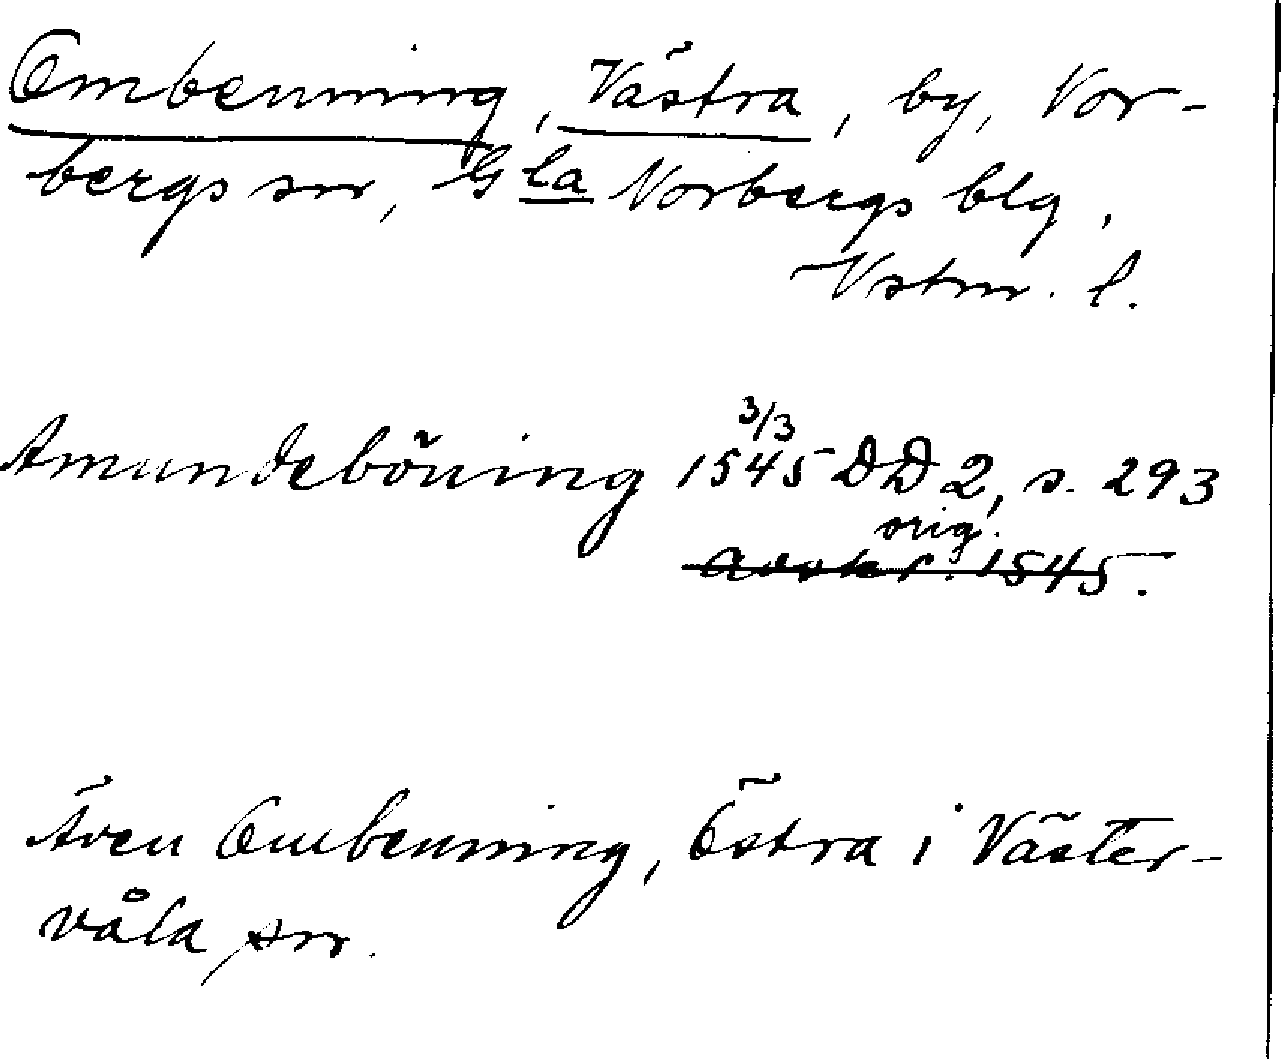 Ombenning, Västra, by, Nor-
bergs sn, Gla Norbergs blg,
Vstm. l.
3/3
Amundeböning 1545 DD 2, s. 293
orig.
avskr. 1545.
Även Ombenning, Östra i Väster-
våla sn.